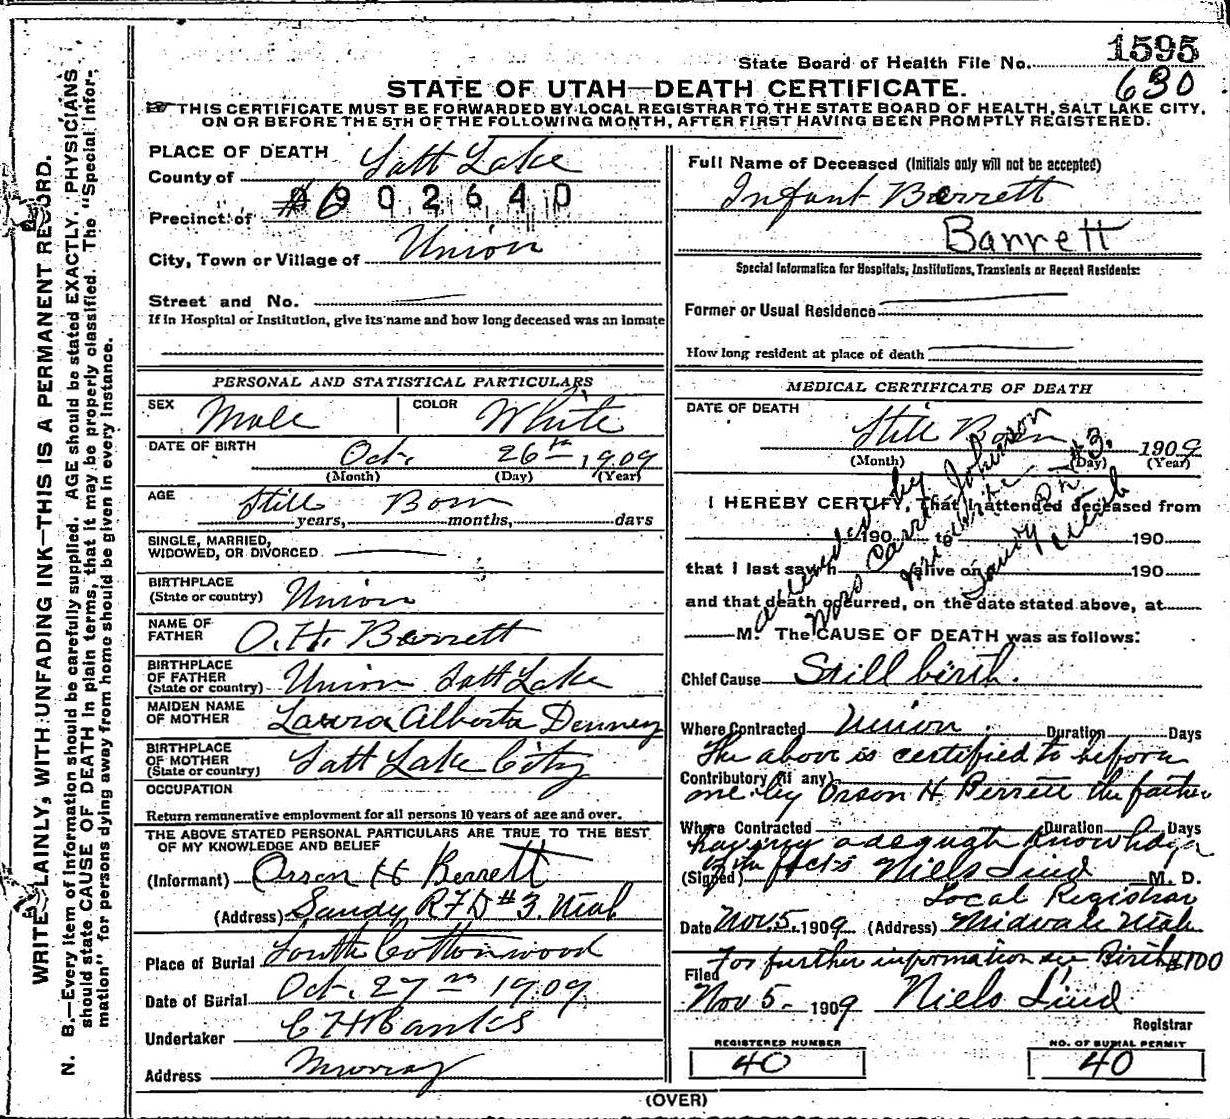 State Board of Health File No. 1595
630
STATE OF UTAH—DEATH CERTIFICATE.
THIS CERTIFICATE MUST BE FORWARDED BY LOCAL REGISTRAR TO THE STATE BOARD OF HEALTH, SALT LAKE CITY,
ON OR BEFORE THE 5TH OF THE FOLLOWING MONTH, AFTER FIRST HAVING BEEN PROMPTLY REGISTERED.
WRITE PLAINLY, WITH UNFADING INK—THIS IS A PERMANENT RECORD.
N. B.—Every item of information should be carefully supplied. AGE should be stated EXACTLY. PHYSICIANS
should state CAUSE OF DEATH in plain terms, that it may be properly classified. The "Special Infor-
mation" for persons dying away from home should be given in every instance.
PLACE OF DEATH
County of Salt Lake
Precinct of #6 0902640
City, Town or Village of Union
Street and No.
If in Hospital or Institution, give its name and how long deceased was an inmate
PERSONAL AND STATISTICAL PARTICULARS
SEX Male COLOR White
DATE OF BIRTH Oct. 26th 1909
(Month) (Day) (Year)
AGE Still Born
years, months, days
SINGLE, MARRIED,
WIDOWED, OR DIVORCED
BIRTHPLACE
(State or country) Union
NAME OF
FATHER O. H. Berrett
BIRTHPLACE
OF FATHER
(State or country) Union Salt Lake
MAIDEN NAME
OF MOTHER Laura Alberta Denney
BIRTHPLACE
OF MOTHER
(State or country) Salt Lake City
OCCUPATION
Return remunerative employment for all persons 10 years of age and over.
THE ABOVE STATED PERSONAL PARTICULARS ARE TRUE TO THE BEST
OF MY KNOWLEDGE AND BELIEF
(Informant) Orson H Berrett
(Address) Sandy, RFD #3. Utah
Place of Burial South Cottonwood
Date of Burial Oct. 27th 1909
Undertaker C H Banks
Address Murray
Full Name of Deceased (Initials only will not be accepted)
Infant Berrett
Barrett
Special Information for Hospitals, Institutions, Transients or Recent Residents:
Former or Usual Residence
How long resident at place of death
MEDICAL CERTIFICATE OF DEATH
DATE OF DEATH Still Born 1909
(Month) (Day) (Year)
I HEREBY CERTIFY, That I attended deceased from
190 to 190
that I last saw h alive on 190
and that death occurred, on the date stated above, at
M. The CAUSE OF DEATH was as follows:
attended by
Mrs Carrl Johnson
midwife
Sandy #3.
Utah
Chief Cause Still birth.
Where Contracted Union. Duration Days
The above is certified to before
Contributory (if any)
me by Orson H Berrett the father
Where Contracted Duration Days
having adequate knowledge
of the facts
(Signed) Niels Lind M. D.
Local Registrar
Date Nov 5. 1909 (Address) Midvale Utah
For further information see Birth #100
Filed
Nov 5 - 1909 Niels Lind
Registrar
REGISTERED NUMBER NO. OF BURIAL PERMIT
40 40
(OVER)